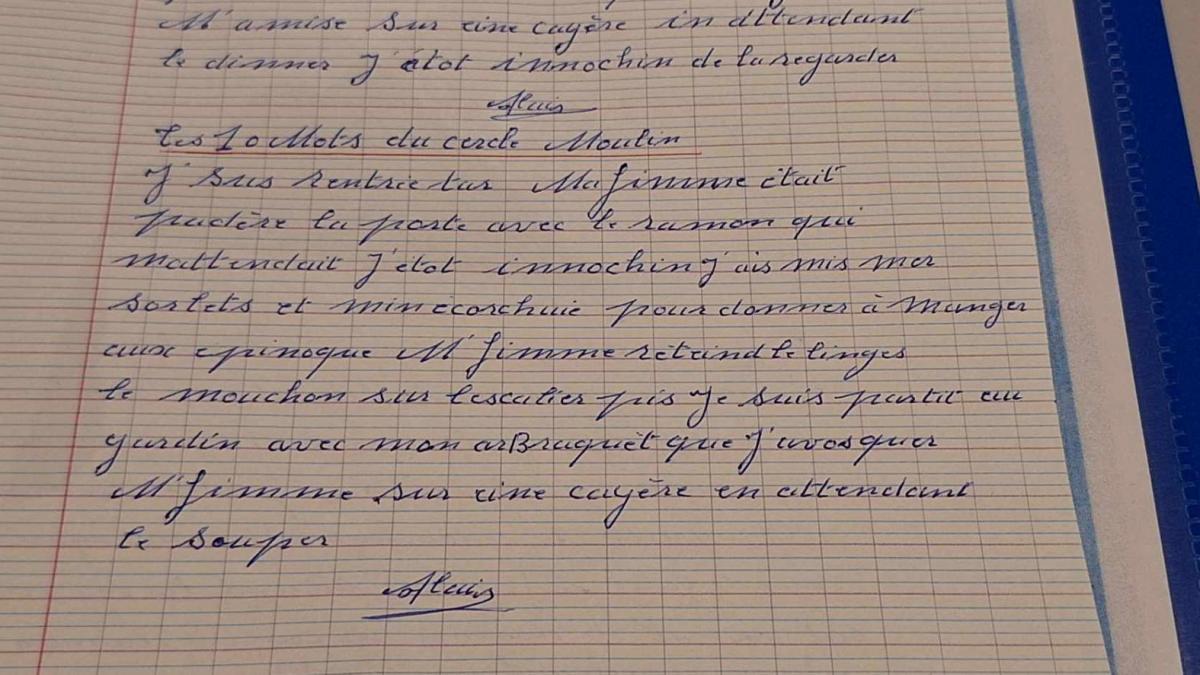 M'amise sur eine cayère in attendant
le dinner J'étot innochin de la regarder
Alain
Les 10 Mots du cercle Moulin
J'sus rentrie tar Ma fimme était
padère la porte avec le ramon qui
mattendait J'étot innochin J'ais mis mer
sorlets et min écorchuie pour donner à Manger
aux épinoque M'fimme rétaind le linges
le mouchon sur lescalier pis Je suis partit au
gardin avec mon arBraquèt que J'avos quer
M'fimme sur eine cayère en attendant
le souper
Alain